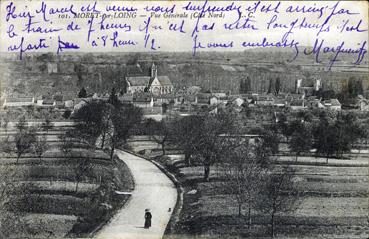 Hier Marcel est venu nous surprendre il est arrivé par
le train de 7 heures il n'est pas resté longtemps il est
reparti par 8 heures 1/2. je vous embrasse Marguerite
101. MORET-sur-LOING - Vue Générale (Côté Nord)
L. C.